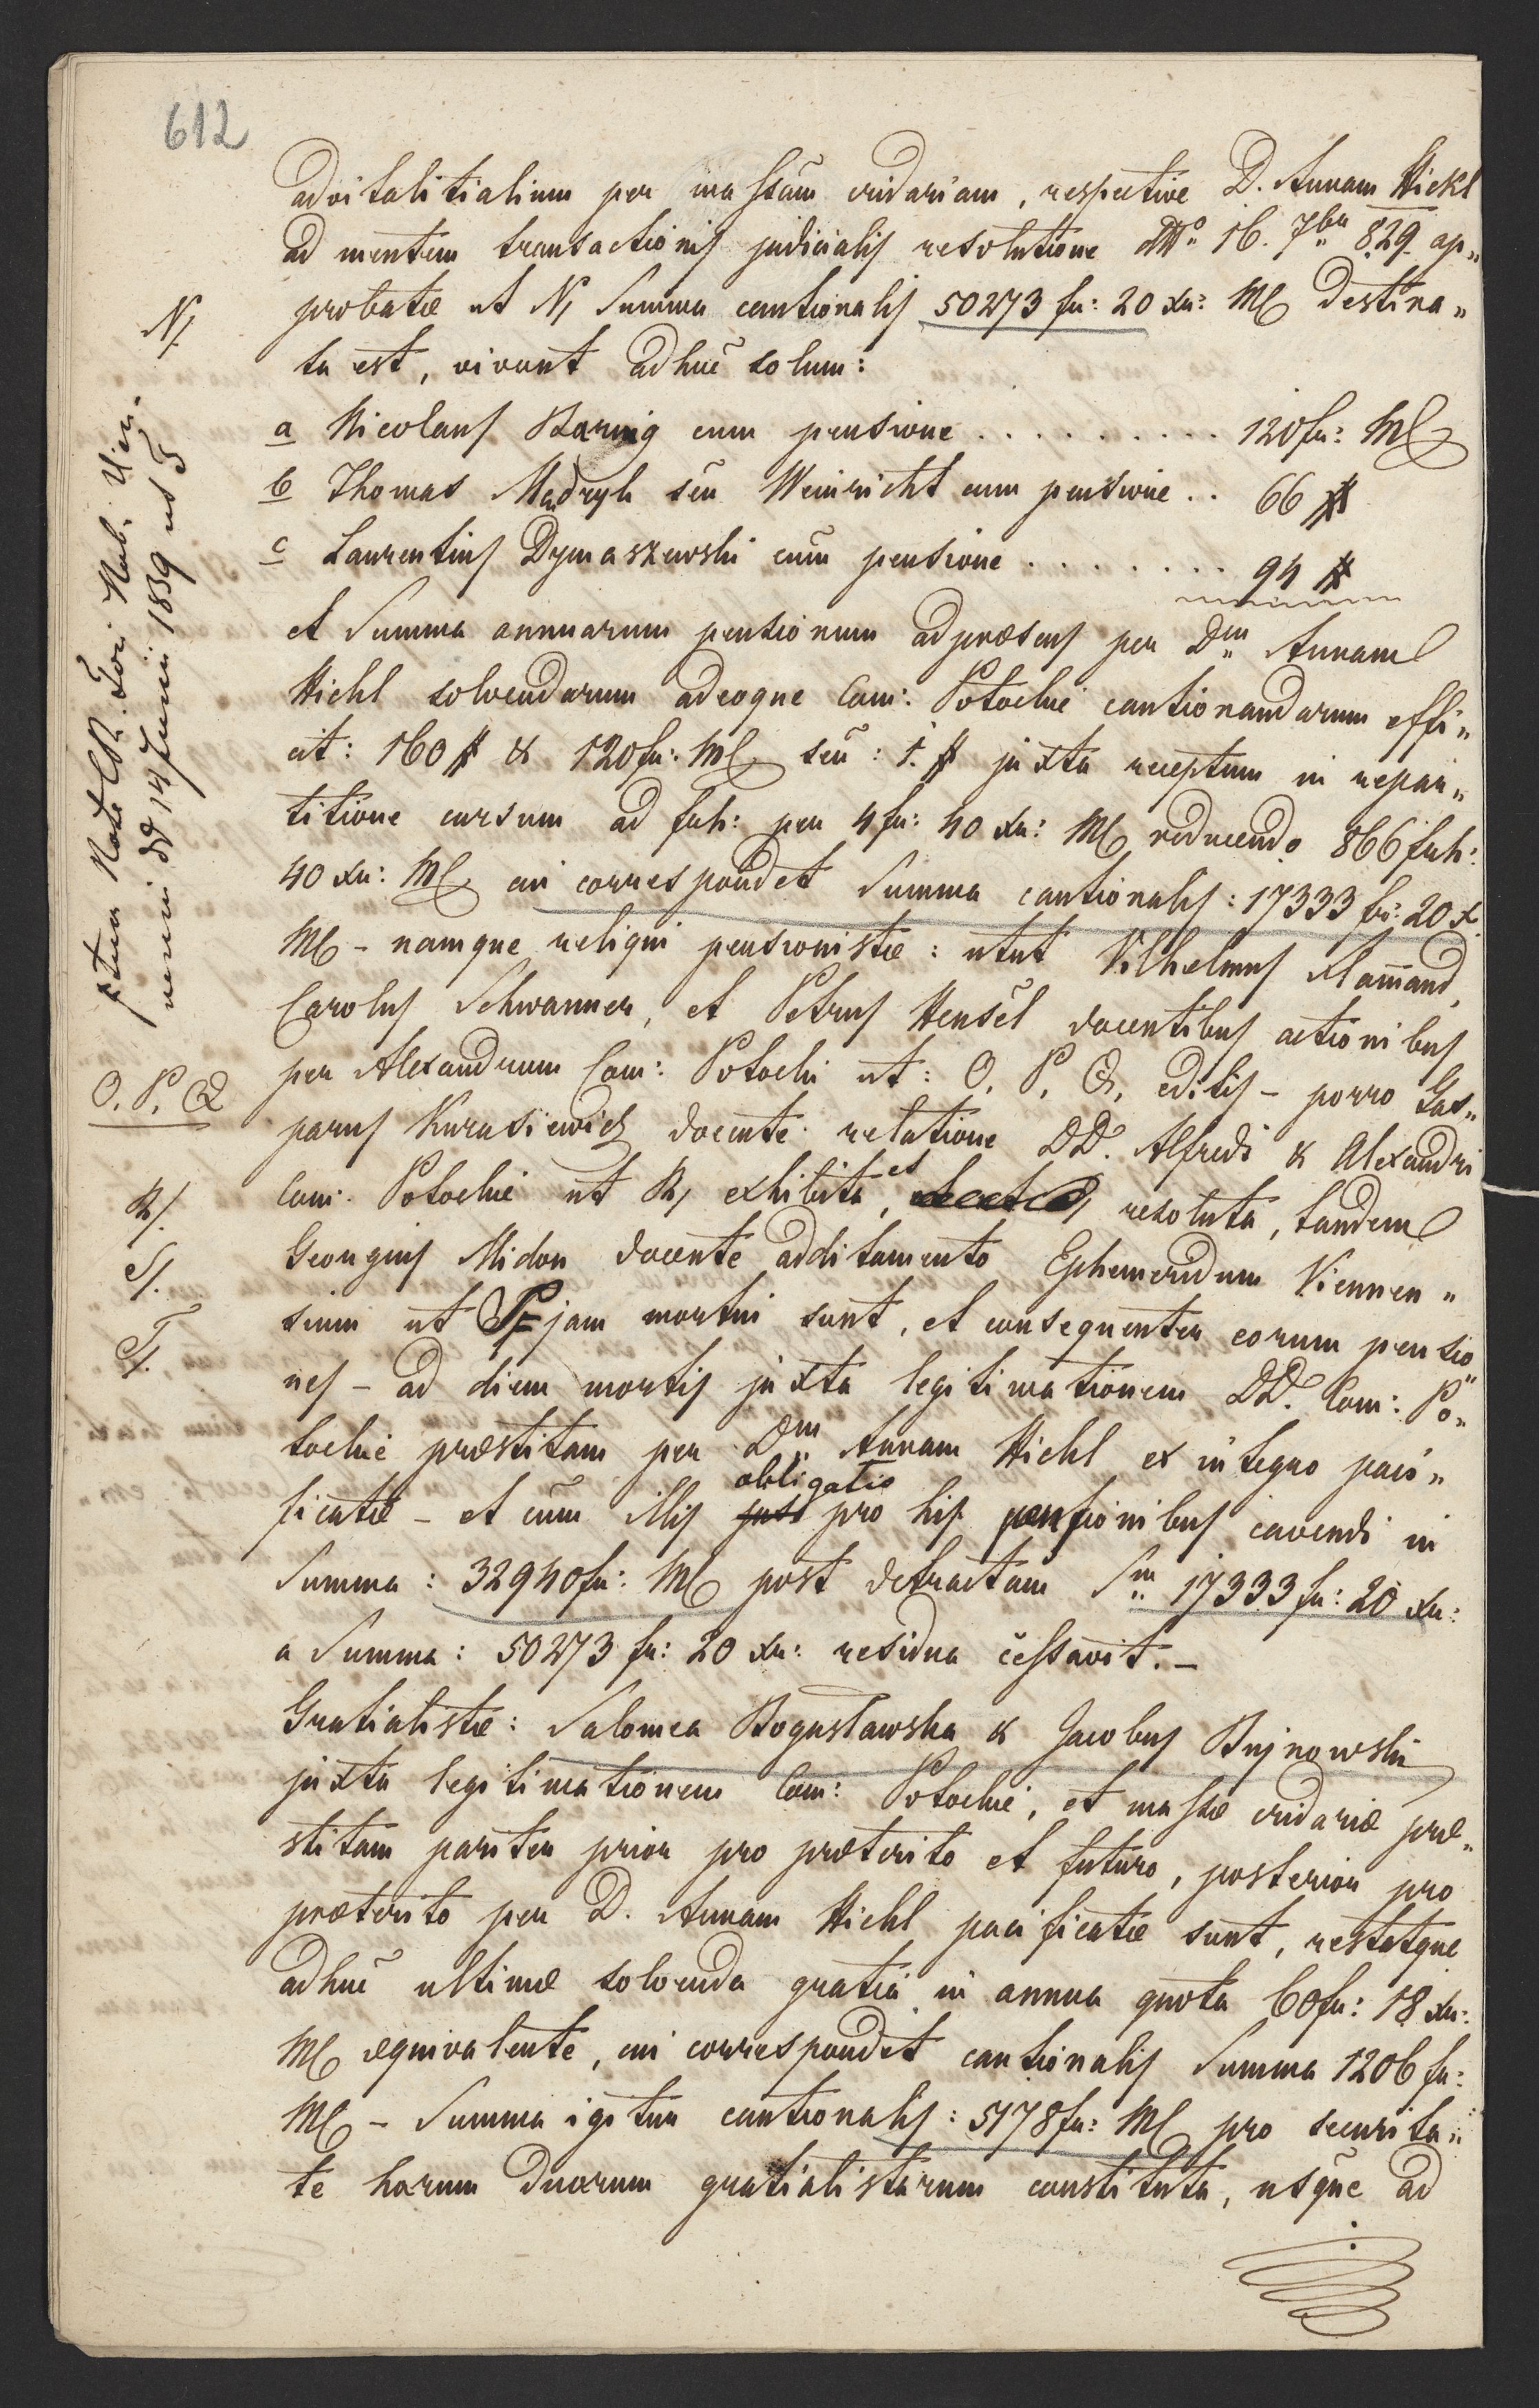 612
advitalitialium per massam cridariam, respective D. Annam Hickl
ad mentem transactionis judicialis resolutione ddto 16. 7bris 829 ap„
probatæ ut N/ Summa cautionalis 50273 fr: 20 xr: MC destina„
ta est, vivunt adhuc solum:
N/.
a Nicolaus Baring cum pensione . . . . . . . . . . 120 fr: MC
b Thomas Madryk seu Weinricht cum pensione . . 66 #
c Laurentius Dymaszewski cum pensione . . . . . . . . 94 #
et Summa annuarum pensionum adpræsens per Dm Annam
Hickl solvendarum adeoque Com: Potockie cautionandarum effi„
cit: 160 # & 120 fr: MC seu: 1. # juxta receptum in repar„
titione cursum ad frh: per 4 fr: 40 xr: MC reducendo 866 frh:
40 xr: MC cui correspondet Summa cautionalis: 17333 fr: 20 x.
MC – namque reliqui pensionistæ: utut Vilhelmus Flamand,
Carolus Schwanner, et Petrus Hensel docentibus actionibus
per Alexandrum Com: Potocki ut: O, P, Q, editis – porro Gas„
O. P. Q
parus Kurasiewicz docente relatione DD. Alfredi & Alexandri
Com: Potockie ut R, exhibita, et resoluta, tandem
R/.
Georgius Midon docente additamento Ephemeridum Viennen„
S/.
sium ut jam mortui sunt, et consequenter eorum pensio„
T/.
nes – ad diem mortis juxta legitimationem DD. Com: Po„
tockie præstitam per Dm Annam Hickl ex integro paci„
obligatio
ficatæ – et cum illis jus pro his pensionibus cavendi in
Summa: 32940 fr: MC post detractam Sm 17333 fr: 20 xr:
a Summa: 50273 fr: 20 xr: residua cessavit. –
Gratialistæ: Salomea Bogusławska & Jacobus Bujnowski
juxta legitimationem Com: Potockie, et massæ cridariæ præ„
stitam pariter prior pro præterito et futuro, posterior pro
præterito per D. Annam Hickl pacificatæ sunt, restatque
adhuc ultimæ solvenda gratia in annua quota 60 fr: 18 xr:
MC æquivalente, cui correspondet cautionalis Summa 1206 fr:
MC – Summa igitur cautionalis: 5178 fr: MC pro securita„
te horum duorum gratialistarum constituta, usque ad
Nob. Vien.
dd 14 Junii 1839 ut T